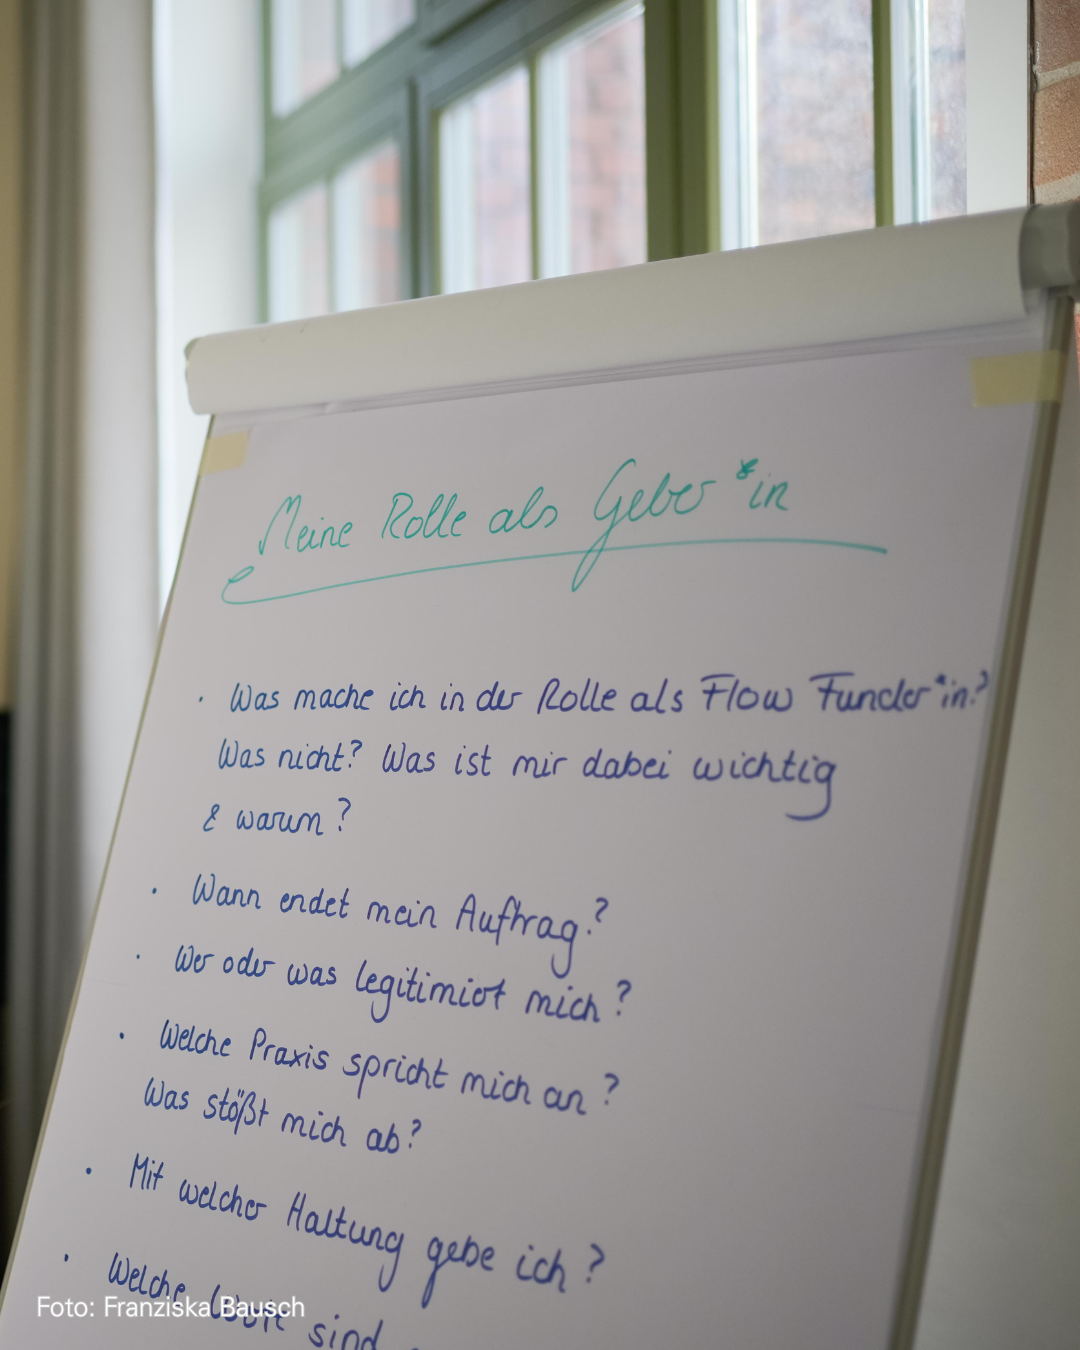 Meine Rolle als Geber*in
· Was mache ich in der Rolle als Flow Funder*in?
Was nicht? Was ist mir dabei wichtig
& warum?
· Wann endet mein Auftrag?
· Wer oder was legitimiert mich?
· Welche Praxis spricht mich an?
Was stößt mich ab?
· Mit welcher Haltung gebe ich?
· Welche sind
Foto: Franziska Bausch